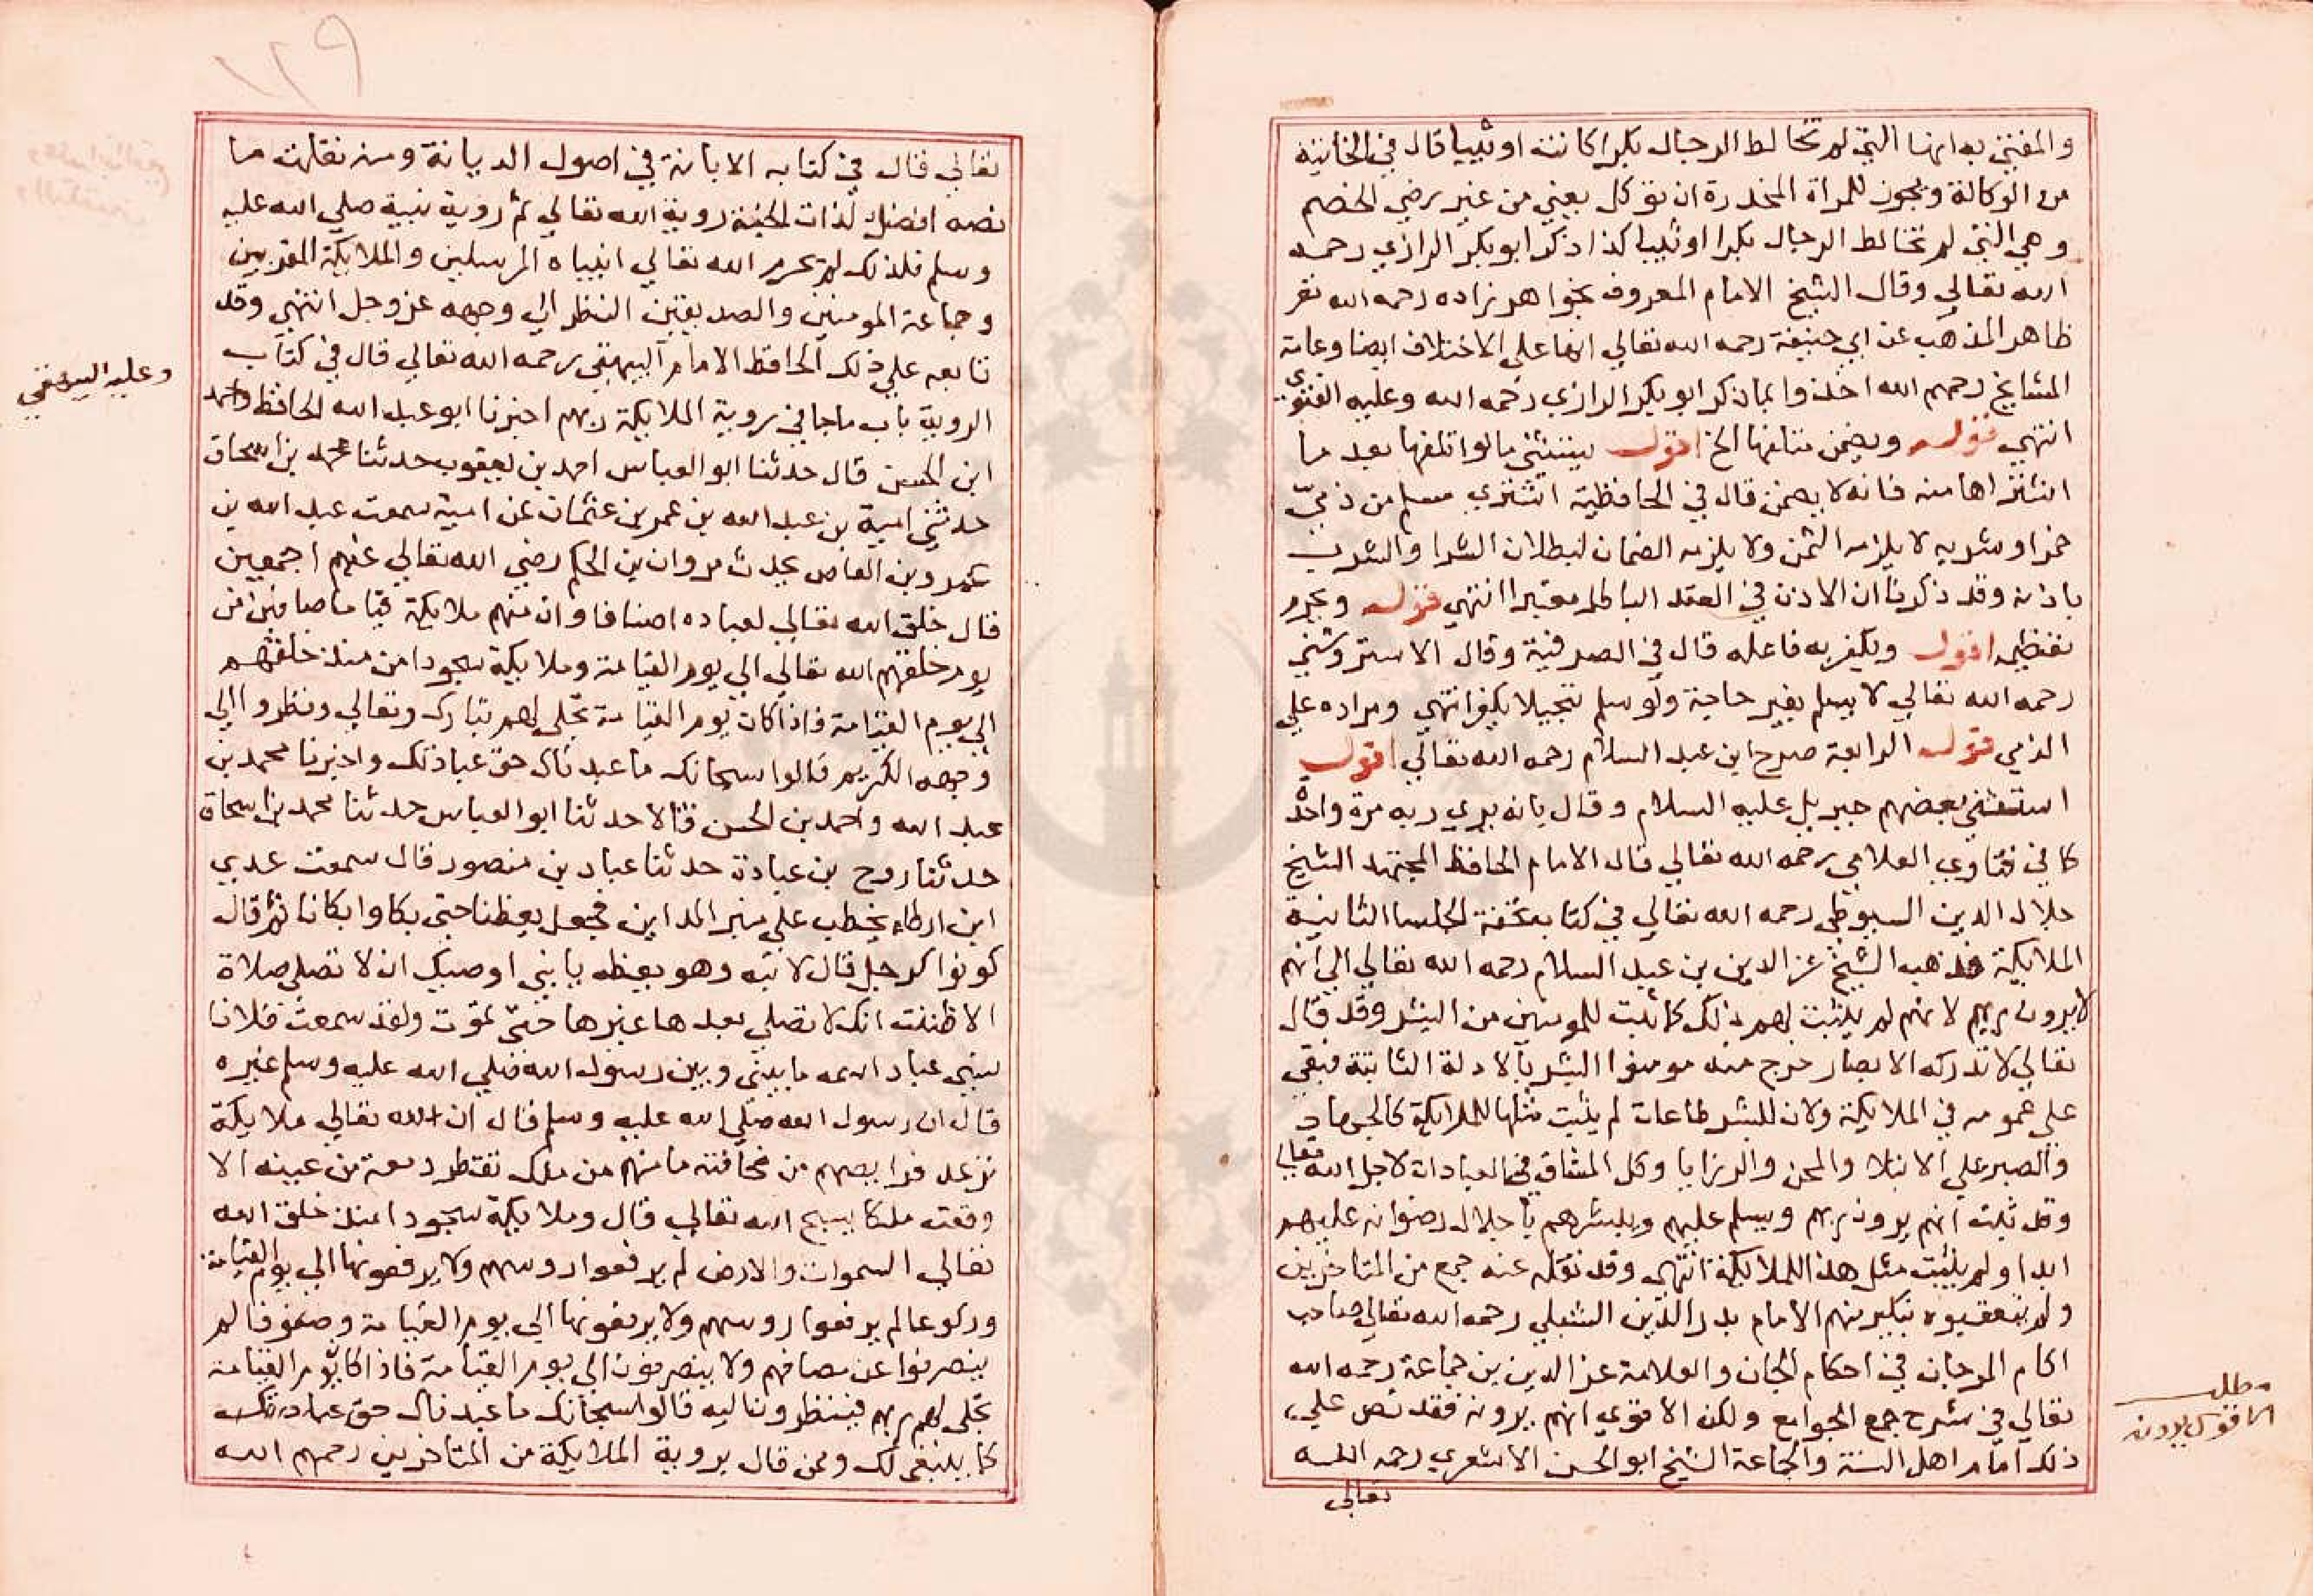 والمفتى به انها التي لم تخالط الرجال بكرا كانت او ثيبا قال في الخانية
من الوكالة ويجوز للمراة المخدرة ان توكل يعني من غير رضي الخصم
وهي التي لم تخالط الرجال بكرا او ثيبا كذا ذكر ابو بكر الرازي رحمه
الله تعالي وقال الشيخ الامام المعروف بخواهر زاده رحمه الله تع
ظاهر المذهب عن ابي حنيفة رحمه الله تعالي انها علي الاختلاف ايضا وعامة
المشايخ رحمهم الله اخذوا بما ذكر ابو بكر الرازي رحمه الله وعليه الفتوي
انتهي قوله ويضمن متلفها الخ اقول يستثني ما لو اتلفها بعد ما
اشتراها منه فانه لا يضمن قال في الحافظية اشتري مسلم من ذمي
خمرا وشربه لا يلزمه الثمن ولا يلزمه الضمان لبطلان الشرا والشرب
باذنه وقد ذكرنا ان الاذن في العقد الباطل معتبر انتهي قوله ويحرم
تعظيمه اقول ويكفر به فاعله قال في الصرفية وقال الاستروشني
رحمه الله تعالي لا يسلم بغير حاجة ولو سلم تبجيلا يكفر انتهي ومراده علي
الذمي قوله الرابعة صرح ابن عبد السلام رحمه الله تعالي اقول
استثني بعضهم جبريل عليه السلام وقال بانه يري ربه مرة واحدة
كما في فتاوي العلامي رحمه الله تعالي قال الامام الحافظ المجتهد الشيخ
جلال الدين السيوطي رحمه الله تعالي في كتابه تحفة الجلسا الثانية
الملايكة فذهب الشيخ عز الدين بن عبد السلام رحمه الله تعالي الي انهم
لا يرون ربهم لانهم لم يثبت لهم ذلك كما ثبت للمومنين من البشر وقد قال
تعالي لا تدركه الابصار خرج منه مومنوا البشر بالادلة الثابتة فبقي
علي عمومه في الملايكة ولان للبشر طاعات لم يثبت مثلها للملايكة كالجهاد
والصبر علي الابتلا والمحن والرزايا وكل المشاق في العبادات لاجل الله تعالي
وقد ثبت انهم يرون ربهم ويسلم عليهم ويبشرهم باحلال رضوانه عليهم
ابدا ولم يثبت مثل هذا للملايكة انتهي وقد نقله عنه جمع من المتاخرين
ولم يتعقبوه بنكير منهم الامام بدر الدين الشبلي رحمه الله تعالي صاحب
اكام المرجان في احكام الجان والعلامة عز الدين بن جماعة رحمه الله
تعالي في شرح جمع الجوامع ولكن الاقوي انهم يرونه فقد نص علي
ذلك امام اهل السنة والجماعة الشيخ ابو الحسن الاشعري رحمه الله
تعالي
مطلب
الاقوي يرونه
تعالي قال في كتابه الابانة في اصول الديانة ومنه نقلت ما
نصه افضل لذات الجنة روية الله تعالي ثم روية نبيه صلي الله عليه
وسلم فلذلك لم يحرم الله تعالي انبياه المرسلين والملايكة المقربين
وجماعة المومنين والصديقين النظر الي وجهه عز وجل انتهي وقد
تابعه علي ذلك الحافظ الامام البيهقي رحمه الله تعالي قال في كتاب
الروية باب ما جا في روية الملايكة ربهم اخبرنا ابو عبد الله الحافظ واحمد
ابن الحسن قال حدثنا ابو العباس احمد بن يعقوب حدثنا محمد بن اسحاق
حدثني امية بن عبد الله بن عمر بن عثمان عن امية سمعت عبد الله بن
عمرو بن العاص يحدث مروان بن الحكم رضي الله تعالي عنهم اجمعين
قال خلق الله تعالي لعباده اصنافا وان منهم ملايكة قياما صافين من
يوم خلقهم الله تعالي الي يوم القيامة وملايكة سجودا من منذ خلقهم
الي يوم القيامة فاذا كان يوم القيامة تجلي لهم تبارك وتعالي ونظروا الي
وجهه الكريم قالوا سبحانك ما عبدناك حق عبادتك واخبرنا محمد بن
عبد الله واحمد بن الحسن قالا حدثنا ابو العباس حدثنا محمد بن اسحاق
حدثنا روح بن عبادة حدثنا عباد بن منصور قال سمعت عدي
ابن ارطاه يخطب علي منبر المداين فجعل يعظنا حتي بكا وابكانا ثم قال
كونوا كرجل قال لابنه وهو يعظه يا بني اوصيك ان لا تصلي صلاة
الا ظننت انك لا تصلي بعدها غيرها حتي تموت ولقد سمعت فلانا
نسي عباد اسمه ما بيني وبين رسول الله صلي الله عليه وسلم غيره
قال ان رسول الله صلي الله عليه وسلم قال ان لله تعالي ملايكة
ترعد فرايصهم من مخافته ما منهم من ملك تقطر دمعة من عينه الا
وقعت ملكا يسبح الله تعالي قال وملايكة سجودا منذ خلق الله
تعالي السموات والارض لم يرفعوا روسهم ولا يرفعونها الي يوم القيامة
وركوعا لم يرفعوا روسهم ولا يرفعونها الي يوم القيامة وصفوفا لم
ينصرفوا عن مصافهم ولا ينصرفون الي يوم القيامة فاذا كان يوم القيامة
تجلي لهم ربهم فينظرون اليه قالوا سبحانك ما عبدناك حق عبادتك
كما ينبغي لك وممن قال بروية الملايكة من المتاخرين رحمهم الله
وعليه البيهقي